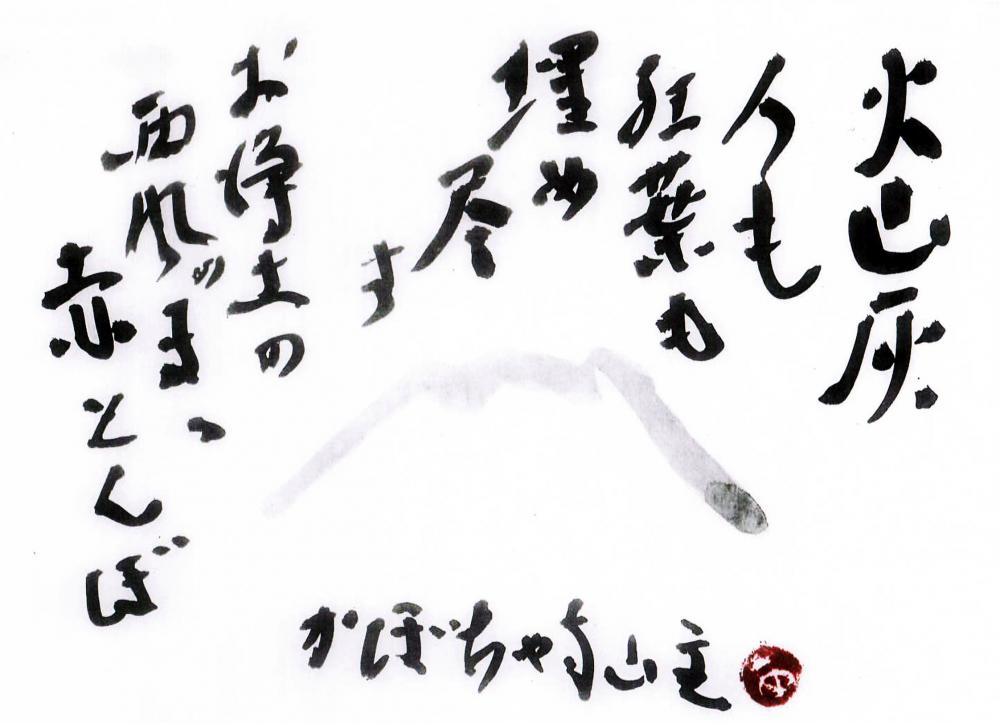 火山灰
人も
紅葉も
埋め
尽
す
お浄土の
西風
赤とんぼ
かぼちゃ寺山主